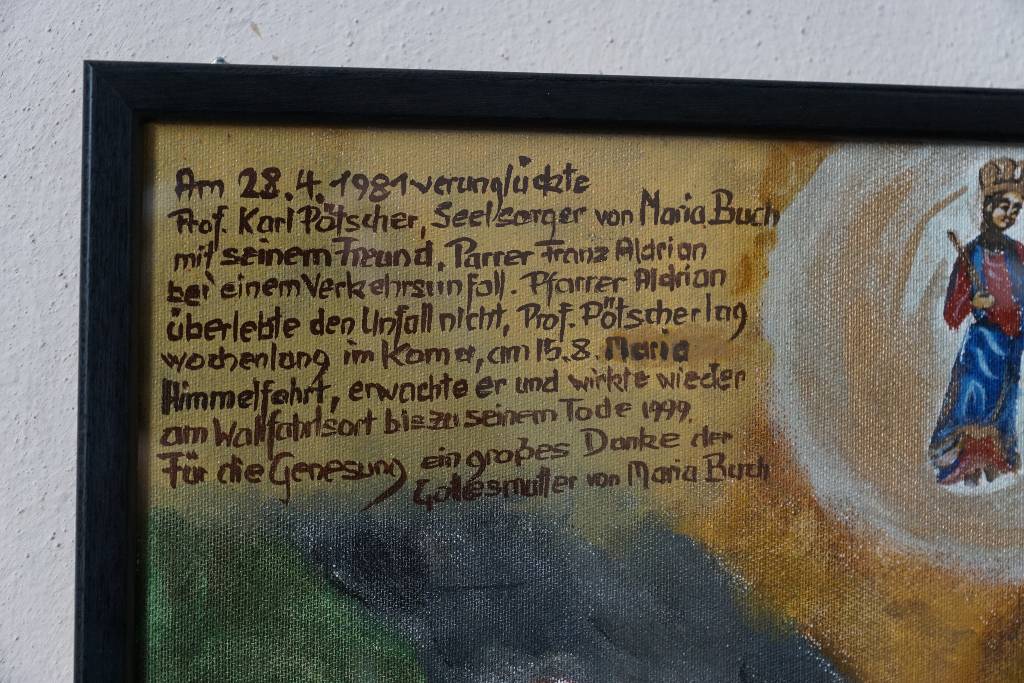 Am 28.4.1981 verunglückte
Prof. Karl Pötscher, Seelsorger von Maria Buch
mit seinem Freund, Parrer Franz Aldrian
bei einem Verkehrsunfall. Pfarrer Aldrian
überlebte den Unfall nicht, Prof. Pötscher lag
wochenlang im Koma, am 15.8. Maria
Himmelfahrt, erwachte er und wirkte wieder
am Wallfahrtsort bis zu seinem Tode 1999.
Für die Genesung ein großes Danke der
Gottesmutter von Maria Buch